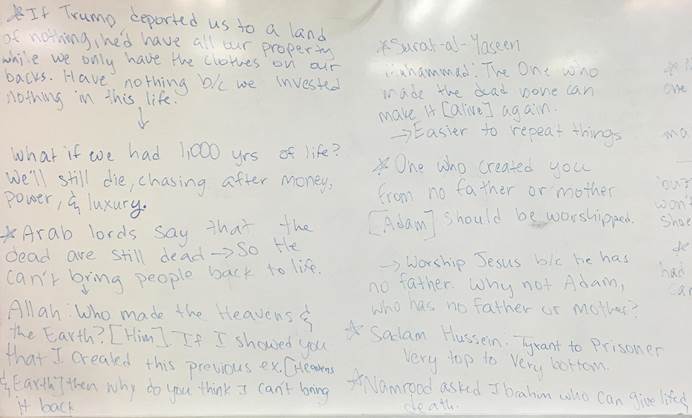 *If Trump deported us to a land
of nothing, he'd have all our property
while we only have the clothes on our
backs. Have nothing b/c we invested
nothing in this life.
↓
What if we had 1,000 yrs of life?
We'll still die, chasing after money,
power, & luxury.
*Arab lords say that the
dead are still dead → So He
can't bring people back to life.
↓
Allah: Who made the Heavens &
the Earth? [Him] If I showed you
that I created this previous ex. [Heavens
& Earth] then why do you think I can't bring
it back
*Surat-al-Yaseen
Muhammad: The One who
made the dead bone can
make it [alive] again.
→Easier to repeat things
*One who created you
from no father or mother
[Adam] should be worshipped.
→ Worship Jesus b/c he has
no father. Why not Adam,
who has no father or Mother?
*Sadam Hussein: Tyrant to Prisoner
Very top to Very bottom.
*Namrood asked Ibrahim who can give life &
death.
one
ma
won't
Shoe
had